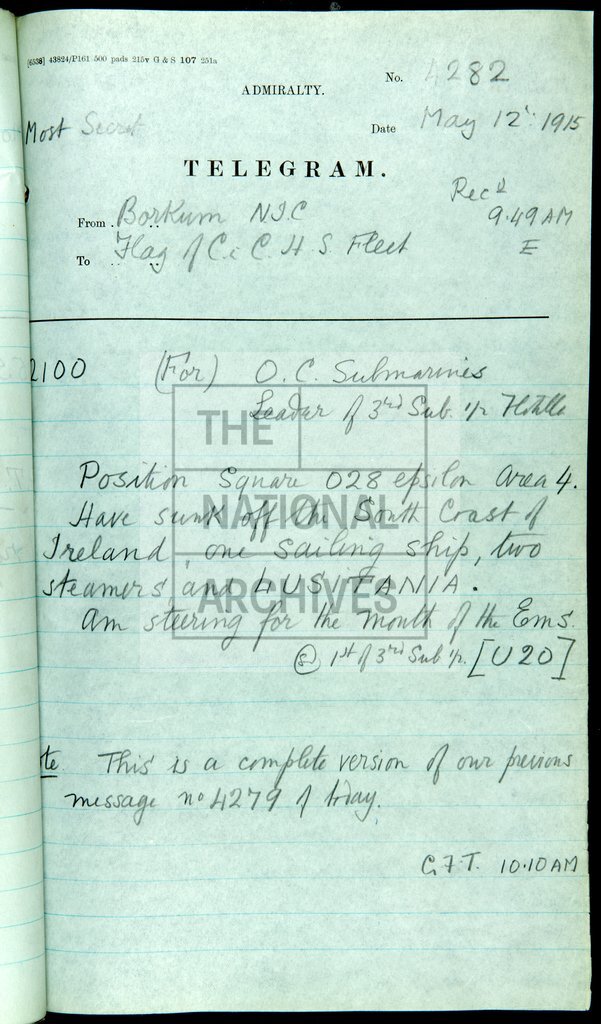 [6538] 43824/P161 500 pads 215v G & S 107 251a
No. 4282
ADMIRALTY.
Most Secret
Date May 12th 1915
TELEGRAM.
Recd
From Borkum N I C
9.49 AM
To Flag of C. i C. H S Fleet
E
2100 (For) O. C. Submarines
Leader of 3rd Sub. ½ Flotilla
THE
NATIONAL
ARCHIVES
Position Square 028 epsilon Area 4.
Have sunk off the South Coast of
Ireland, one sailing ship, two
steamers, and LUSITANIA.
Am steering for the mouth of the Ems.
(s) 1st of 3rd Sub ½. [U20]
te. This is a complete version of our previous
message no 4279 of today.
G.F.T. 10.10 AM